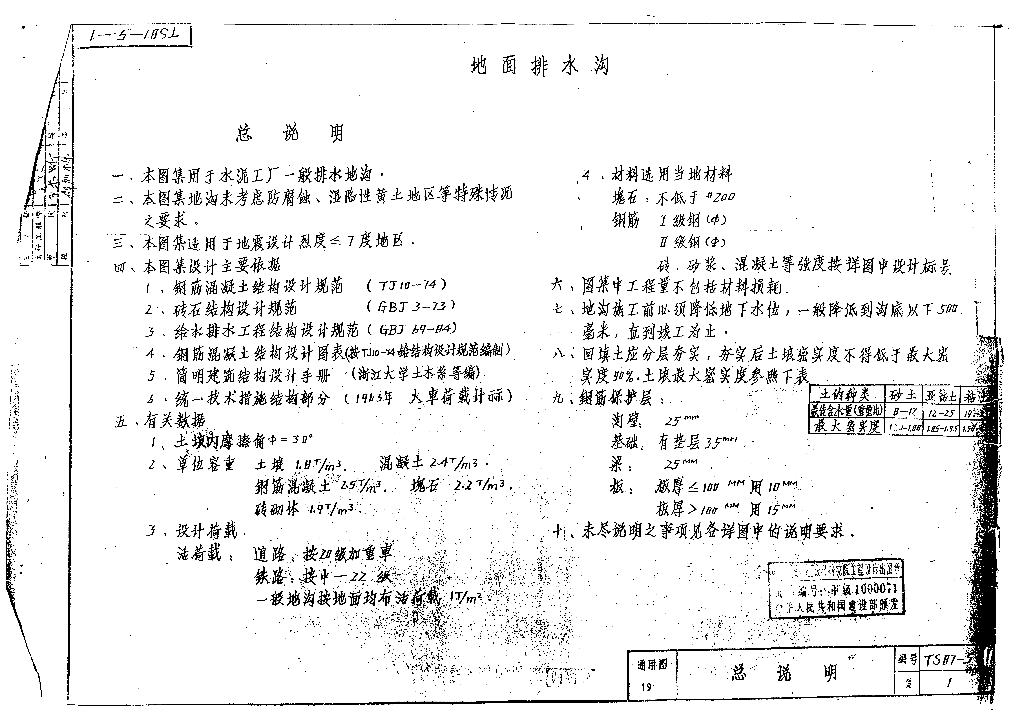 地面排水沟
总说明
一、本图集用于水泥工厂一般排水地沟。
二、本图集地沟未考虑防腐蚀、湿陷性黄土地区等特殊情况
之要求。
三、本图集适用于地震设计烈度≤7度地区。
四、本图集设计主要依据
1、钢筋混凝土结构设计规范 (TJ10-74)
2、砖石结构设计规范 (GBJ3-73)
3、给水排水工程结构设计规范(GBJ69-84)
4、钢筋混凝土结构设计图表(按TJ10-74 结构设计规范编制)
5、简明建筑结构设计手册 (浙江大学土木系等编)
6、统一技术措施结构部分
五、有关数据
1、土壤内摩擦角Φ=30°
2、单位容重 土壤 1.8T/m³、 混凝土2.4T/m³、
钢筋混凝土2.5T/m³、 块石 2.2T/m³、
砖砌体 1.9T/m³、
3、设计荷载
活荷载: 道路:按20级加重车
铁路:按中—22级
一般地沟按地面均布活荷载 1T/m²、
4、材料选用当地材料
块石:不低于#200
钢筋 Ⅰ级钢(Φ)
Ⅱ级钢(Φ)
砖、砂浆、混凝土等强度按详图中设计标号
六、图集中工程量不包括材料损耗.
七、地沟施工前必须降低地下水位,一般降低到沟底以下500
毫米,直到竣工为止.
八、回填土应分层夯实,夯实后土壤密实度不得低于最大密
实度90%.土壤最大密实度参照下表
土的种类 砂土 亚粘土
最佳含水量(重量比) 8-12 12-25
最大密实度 1.85-1.95
九、钢筋保护层:
沟壁: 25mm
基础: 有垫层35mm
梁: 25mm
板: 板厚≤100mm用10mm
板厚>100mm用15mm
十、未尽说明之事项见各详图中的说明要求.
编号:甲级1000071
人民共和国建设部颁发
通用图
19
总说明
编号 TS87-5
页 1